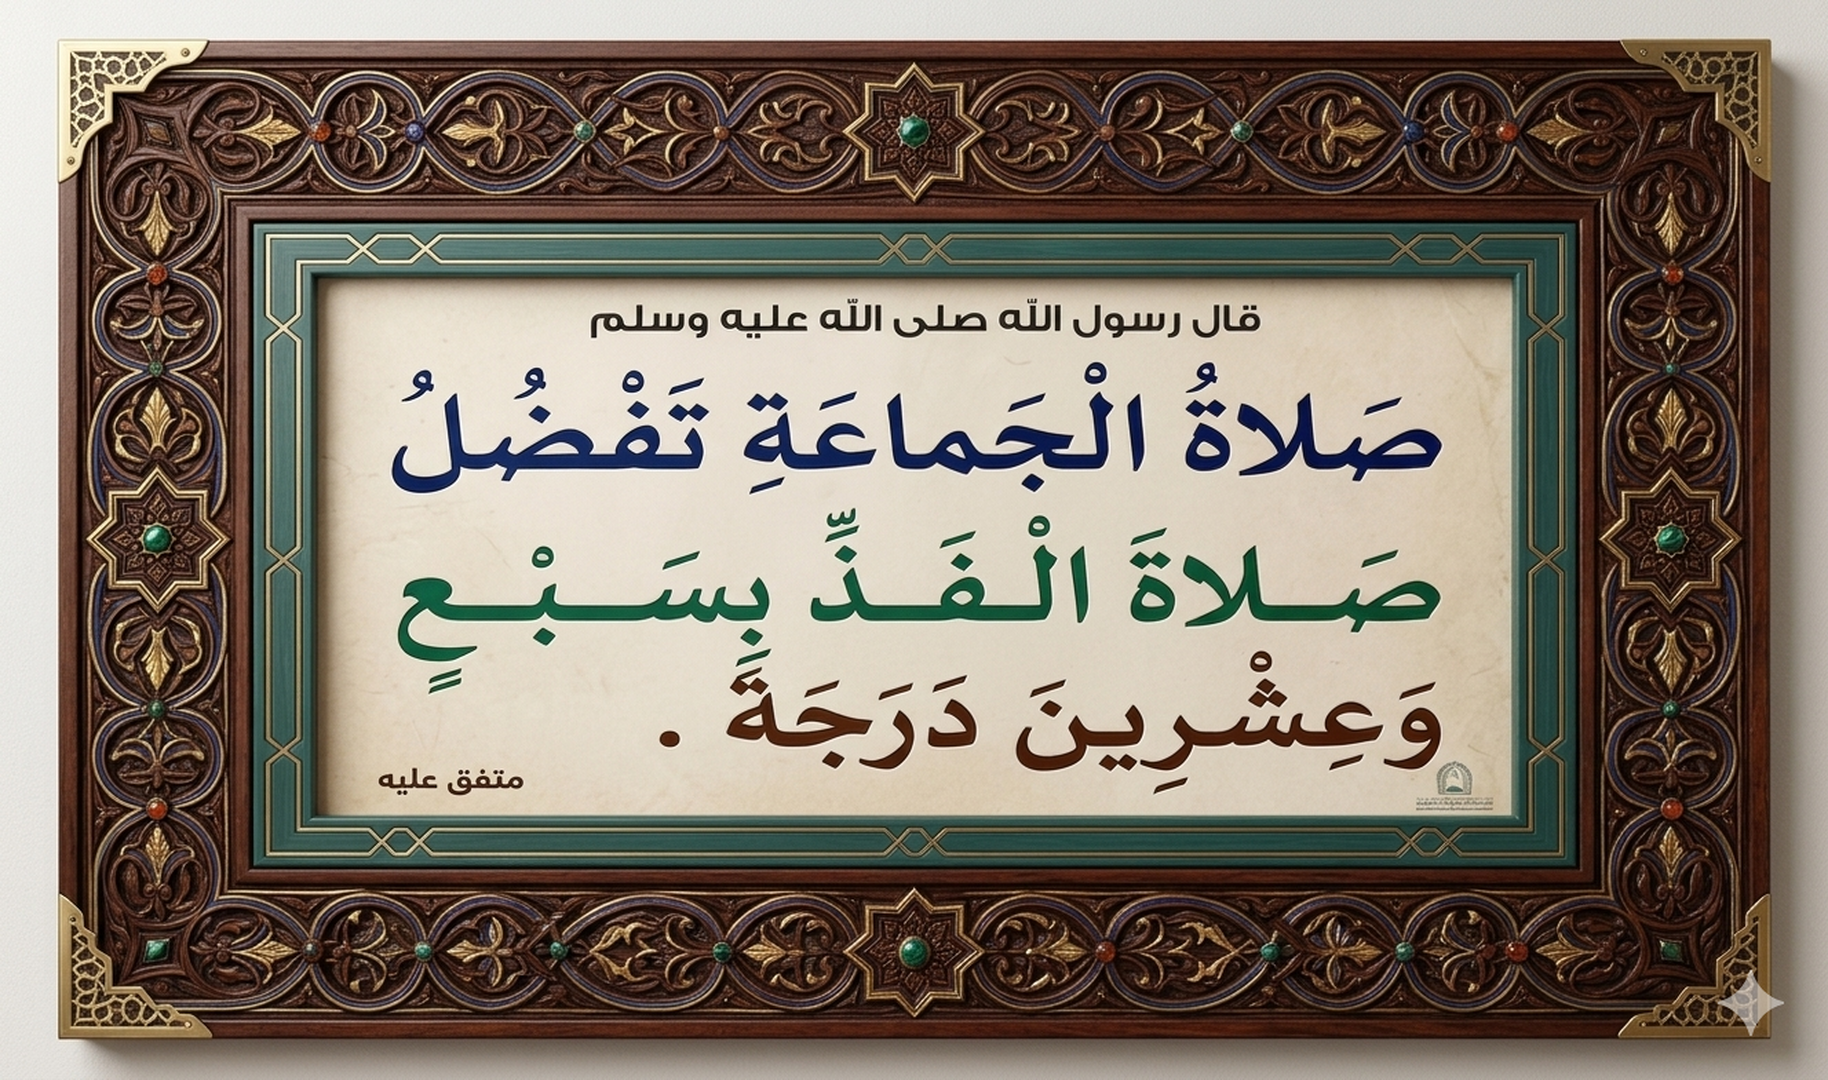 قال رسول الله صلى الله عليه وسلم
صَلاةُ الْجَماعَةِ تَفْضُلُ
صَلاةَ الْفَذِّ بِسَبْعٍ
وَعِشْرِينَ دَرَجَةً .
متفق عليه